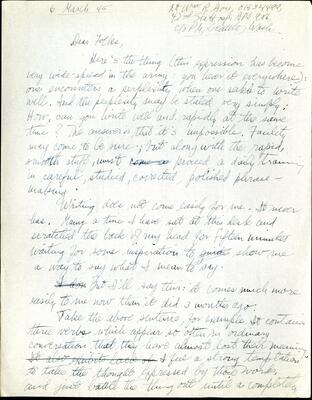 6 March 45
Lt Wm R.
42nd
c/o P.M., Seattle, Wash.
Dear Folks,
Here's the thing (this expression has become
very widespread in the army you hear it everywhere):
one encounters a perplexity when one sits to write
well. And the perplexity may be stated very simply:
How can you write well and rapidly at the same
time? The answer is that it's impossible. Facility
may come to be sure; but along with the rapid,
smooth stuff, must proceed a daily training
in careful, studied, corrected, polished phrase-
making.
Writing does not come easily for me. It never
has. Many a time I have sat at this desk and
scratched the back of my head for fifteen minutes
waiting for some inspiration to guide show me
a way to say what I mean to say.
I am But I'll say this: it comes much more
easily to me now than it did 3 months ago.
Take the above sentence, for example. It contains
three verbs which appear so often in ordinary
conversation that they have almost lost their meaning.
It also exhibits lack of I feel a strong temptation
to take the thought expressed by those words
and just battle the thing out until a completely